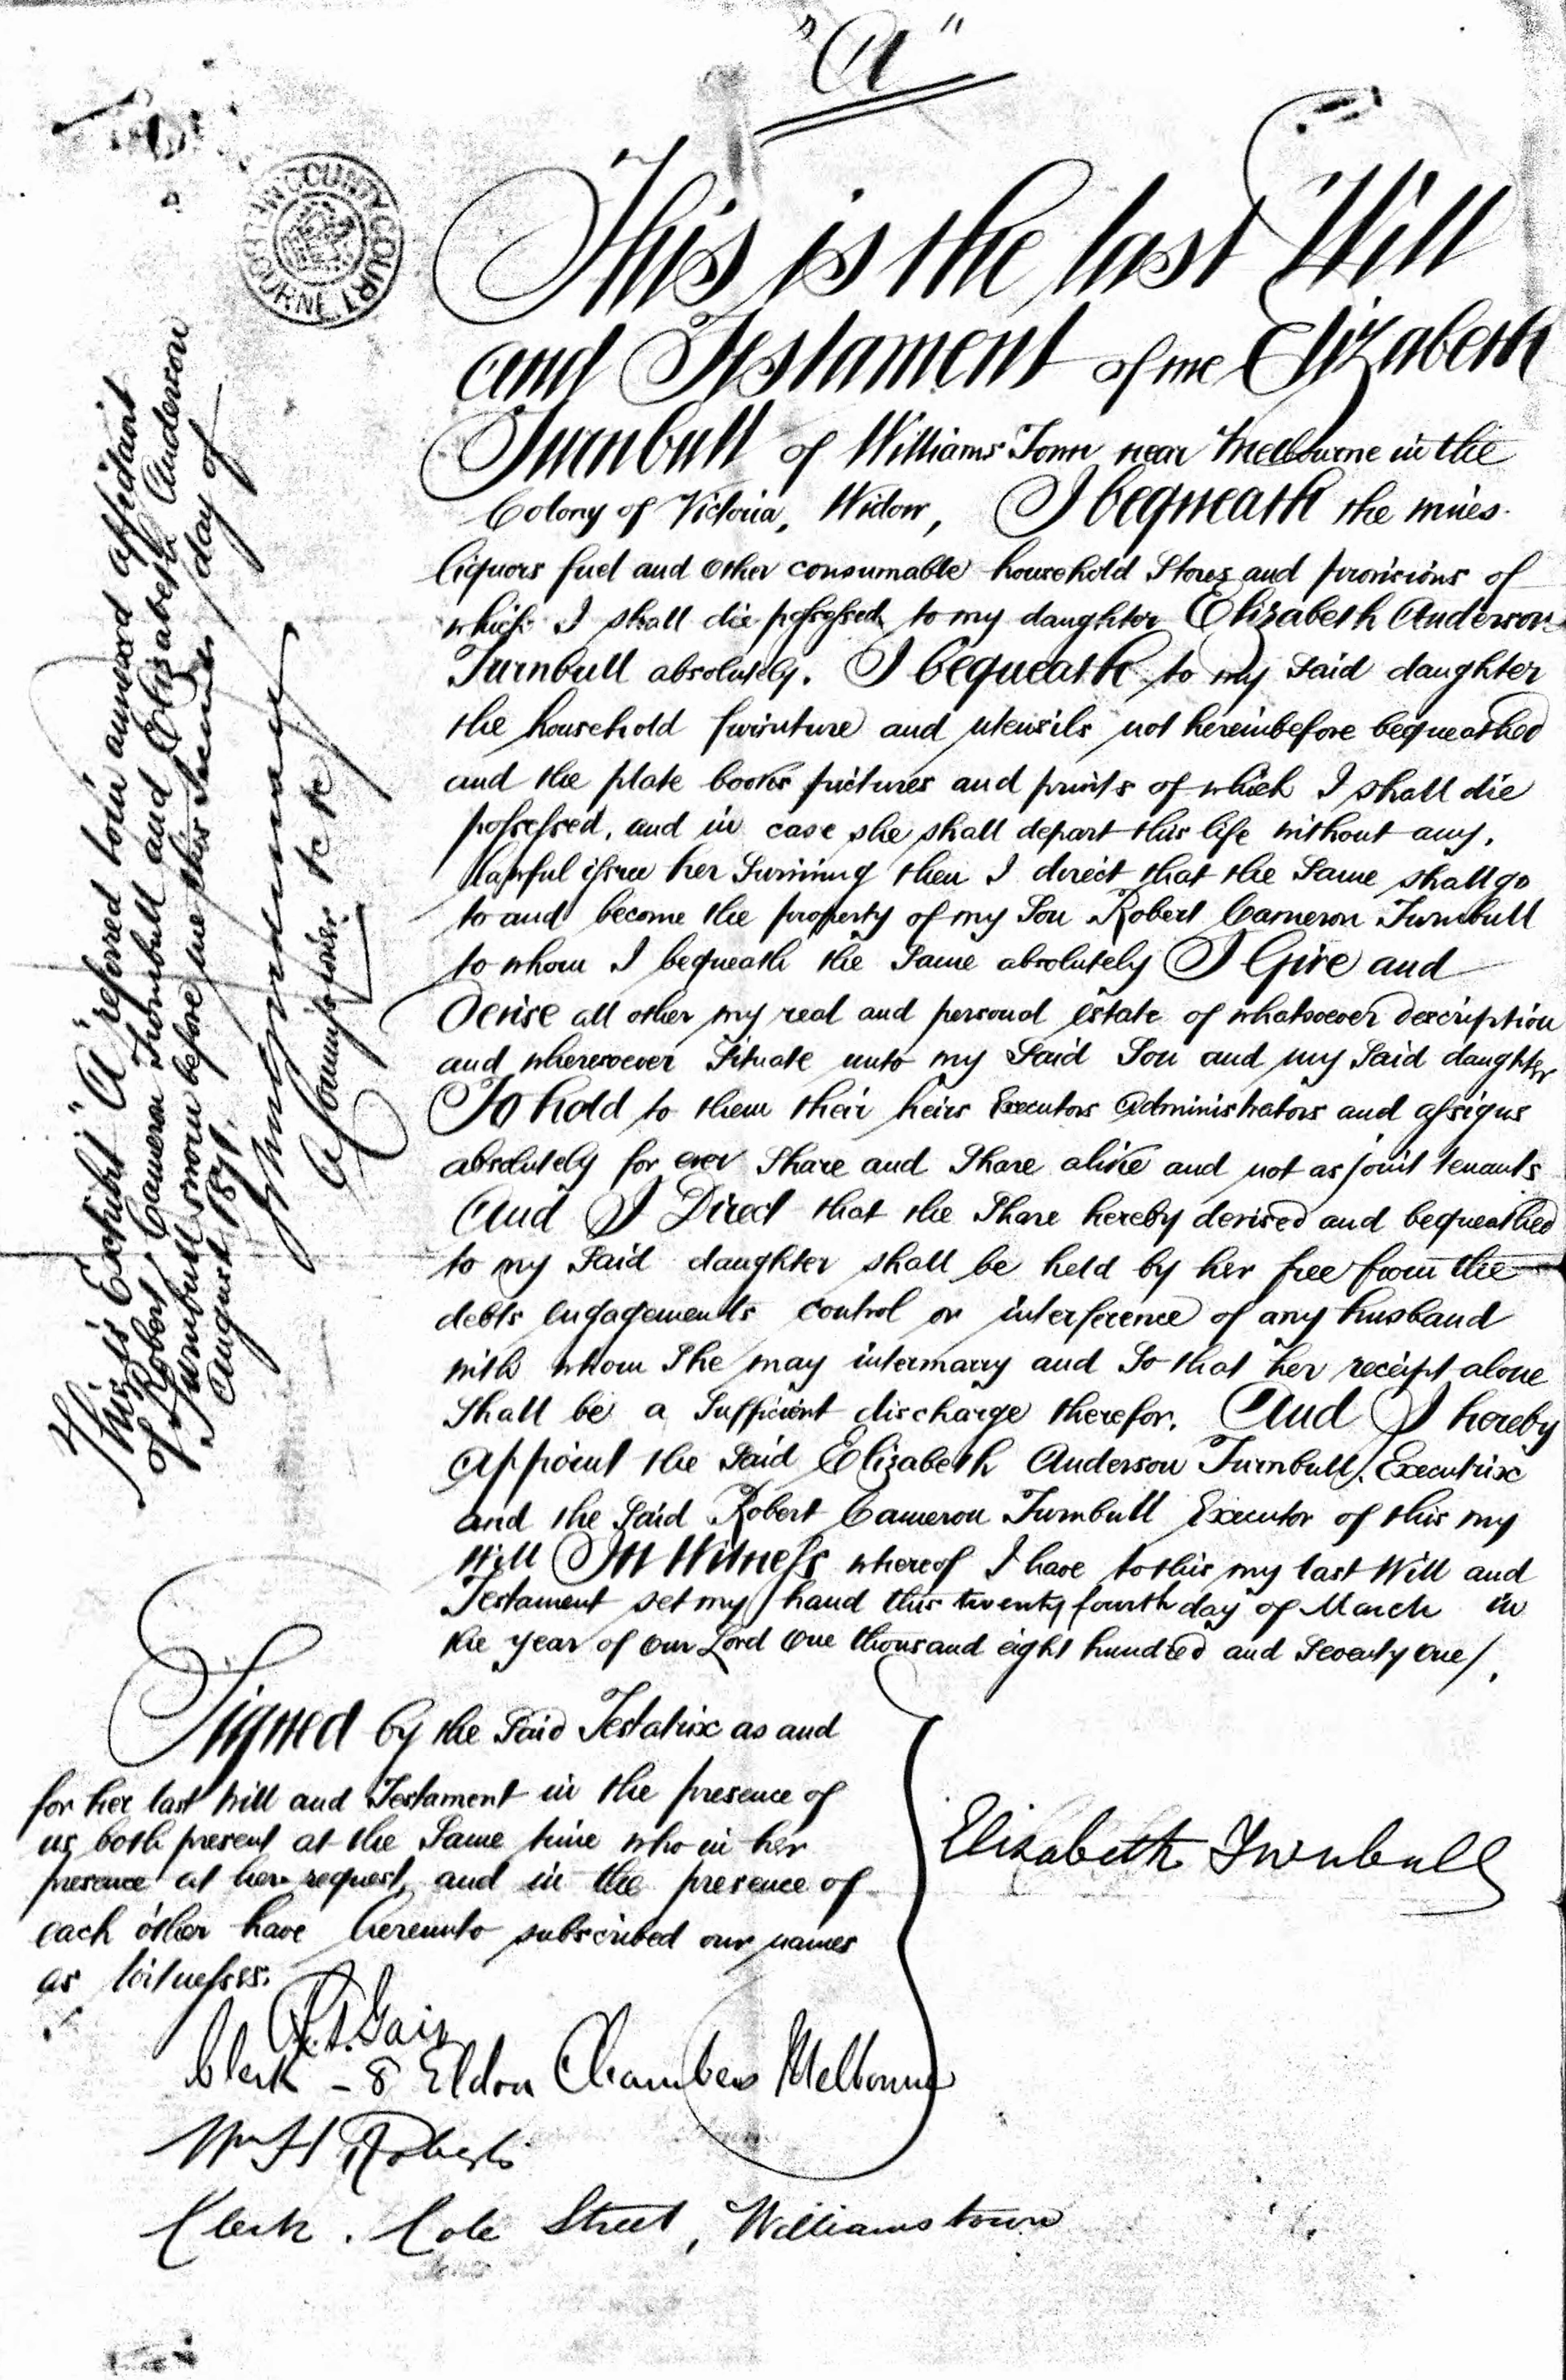 "A"
This is the last Will
and Testament of me Elizabeth
Turnbull of Williams Town near Melbourne in the
Colony of Victoria, Widow, I bequeath the wines
liquors fuel and other consumable household Stores and provisions of
which I shall die possessed to my daughter Elizabeth Anderson
Turnbull absolutely. I bequeath to my said daughter
the household furniture and utensils not hereinbefore bequeathed
and the plate books pictures and prints of which I shall die
possessed, and in case she shall depart this life without any
lawful issue her Surviving then I direct that the Same shall go
to and become the property of my Son Robert Cameron Turnbull
to whom I bequeath the Same absolutely I Give and
Devise all other my real and personal estate of whatsoever description
and wheresoever Situate unto my Said Son and my Said daughter
To hold to them their heirs Executors Administrators and assigns
absolutely for ever Share and Share alike and not as joint tenants
And I Direct that the Share hereby devised and bequeathed
to my Said daughter shall be held by her free from the
debts engagements control or interference of any husband
with whom She may intermarry and So that her receipt alone
Shall be a Sufficient discharge therefor. And I hereby
Appoint the Said Elizabeth Anderson Turnbull Executrix
and the Said Robert Cameron Turnbull Executor of this my
Will In Witness whereof I have to this my last Will and
Testament set my hand this twenty fourth day of March in
the year of our Lord One thousand eight hundred and Seventy One/.
Signed by the Said Testatrix as and
for her last Will and Testament in the presence of
us both present at the Same time who in her
presence at her request, and in the presence of
each other have hereunto subscribed our names
as Witnesses.
Elizabeth Turnbull
Clerk - 8 Eldon Chambers Melbourne
Wm H Roberts
Clerk. Cole Street, Williamstown
This is Exhibit "A" referred to in annexed affidavit
of Robert Cameron Turnbull and Elizabeth Anderson
Turnbull sworn before me this Second day of
August 1871.
A Commissioner &c &c
COUNTY COURT